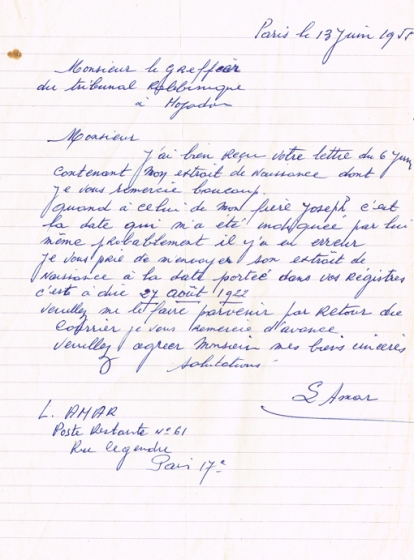 Paris le 13 Juin 195
Monsieur le Greffier
du tribunal Rabbinique
à Mogador
Monsieur
J'ai bien Reçu votre lettre du 6 Juin
contenant mon extrait de Naissance dont
Je vous remercie baucoup.
quand à celui de mon frère Joseph c'est
la date qui m'a été indiquée par lui
même probablement il y'a eu erreur
Je vous prie de m'envoyer son extrait de
Naissance à la date portée dans vos Régistres
c'est à dire 27 Août 1922
veuillez me le faire parvenir par Retour du
Courrier je vous Remercie d'avance
veuillez agréer Monsieur mes biens sincères
salutations
L Amar
L. AMAR
Poste Restante No 61
Rue legendre
Paris 17e